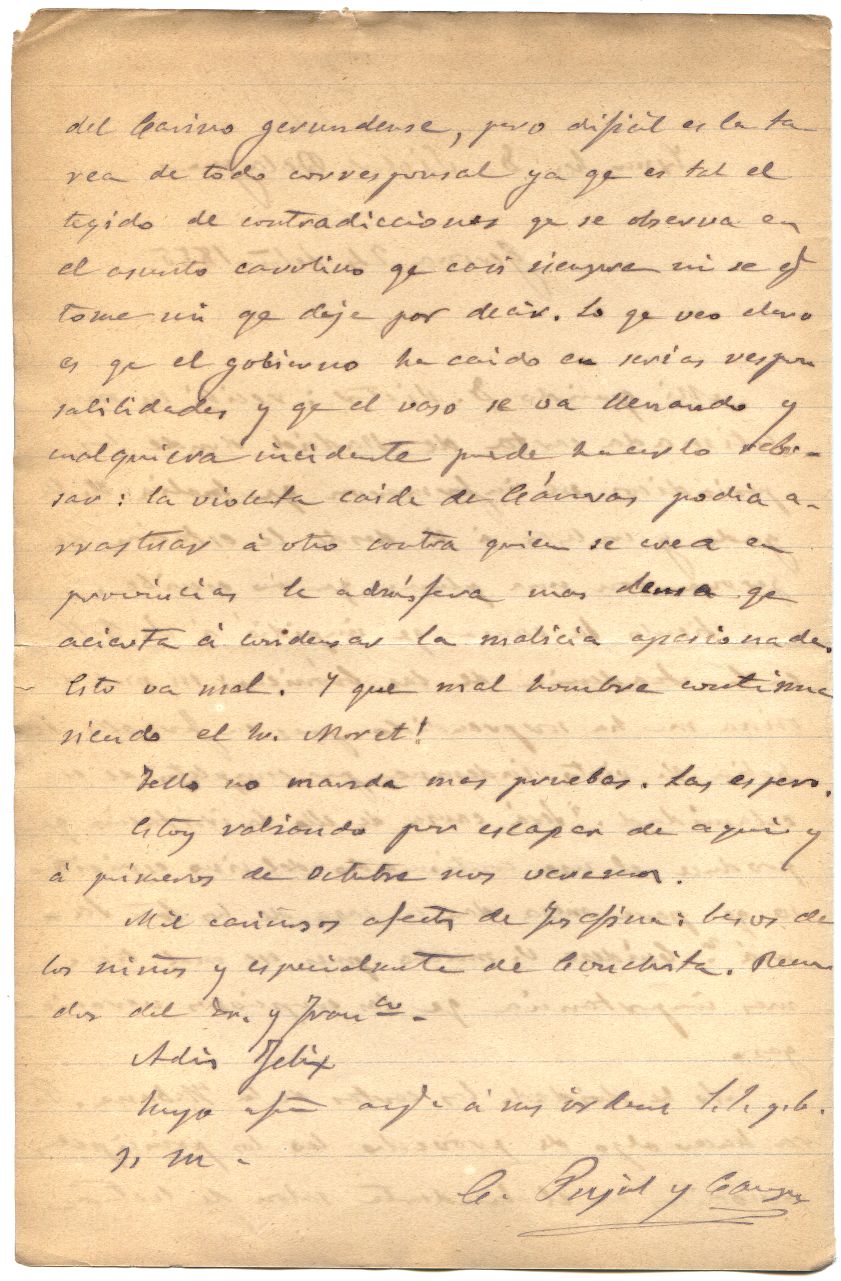 del Casino gerundense, pero dificil es la ta-
rea de todo corresponsal ya qe es tal el
tegido de contradicciones qe se observa en
el asunto carolino qe casi siempre ni se qe
tome ni qe deje por decir. Lo qe veo claro
es qe el gobierno ha caido en serias respon
sabilidades y qe el vaso se va llenando y
cualquiera incidente puede hacerlo rebo-
sar: la violenta caida de Cánovas podia a-
rrastrar á otro contra quien se crea en
provincias la admósfera mas densa qe
acierta á condensar la malicia apasionada.
Esto va mal. Y que mal hombre continua
siendo el Sr. Moret!
Tello no manda mas pruebas. Las espero.
Estoy rabiando por escapar de aqui y
á primeros de Octubre nos veremos.
Mil cariñosos afectos de Josefina: besos de
los niños y especialmente de Conchita. Recuer
dos del Dr. y Franco.-
Adios Felix
Suyo afmo á sus órdenes S. S. q. b.
s. m.-
C. Pujol y Camps